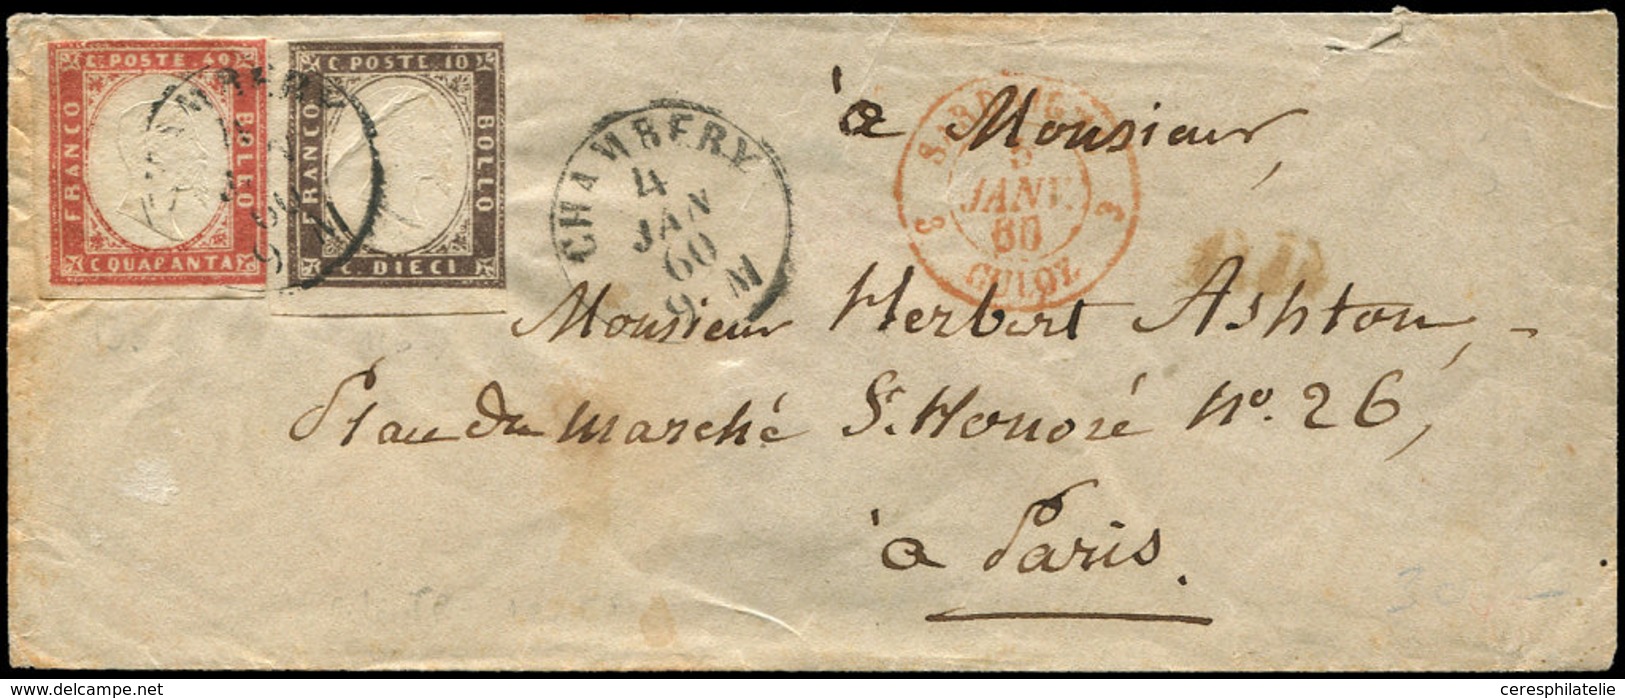 C. POSTE 40
FRANCO
BOLLO
C QUARANTA
C. POSTE 10
FRANCO
BOLLO
C. DIECI
CHAMBERY
4
JAN
60
9 M
SARDAIGNE
5
JANV.
60
3 CULOZ 3
à Monsieur,
Monsieur Herbert Ashton,
Place du Marché St. Honoré No. 26,
à Paris.
www.delcampe.net
ceresphilatelie